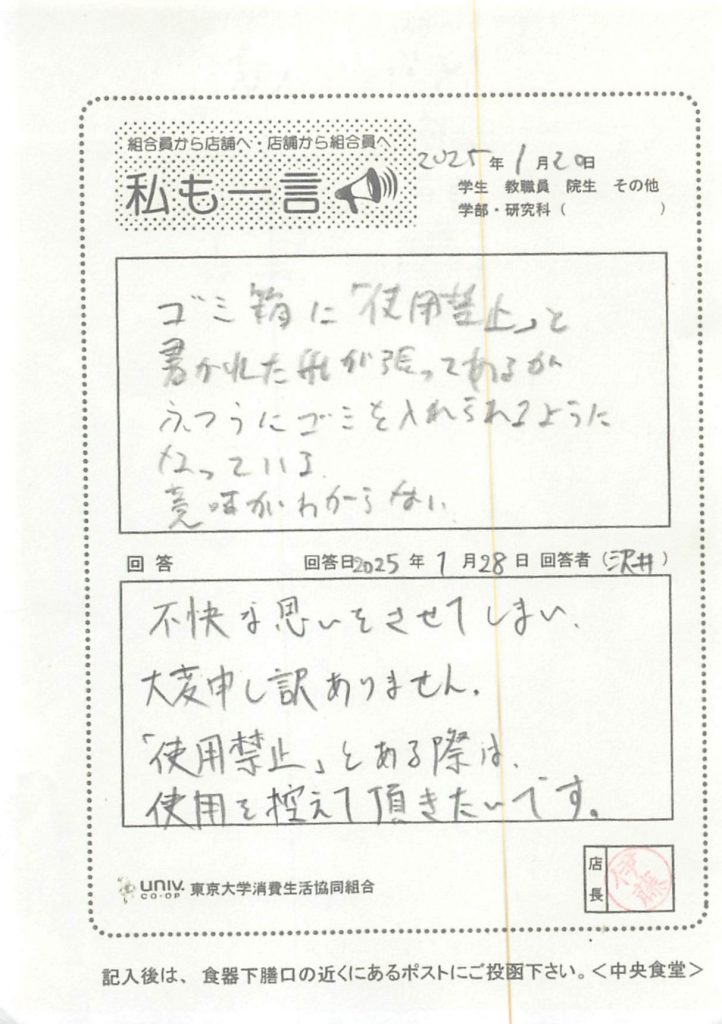 組合員から店舗へ・店舗から組合員へ
私も一言
2025年1月20日
学生 教職員 院生 その他
学部・研究科( )
ゴミ箱に「使用禁止」と
書かれた紙が張ってあるが
ふつうにゴミを入れられるように
なっている.
意味がわからない.
回答 回答日2025年1月28日 回答者(沢井)
不快な思いをさせてしまい、
大変申し訳ありません。
「使用禁止」とある際は、
使用を控えて頂きたいです。
UNIV. CO-OP 東京大学消費生活協同組合
店長 伊藤
記入後は、食器下膳口の近くにあるポストにご投函下さい。<中央食堂>